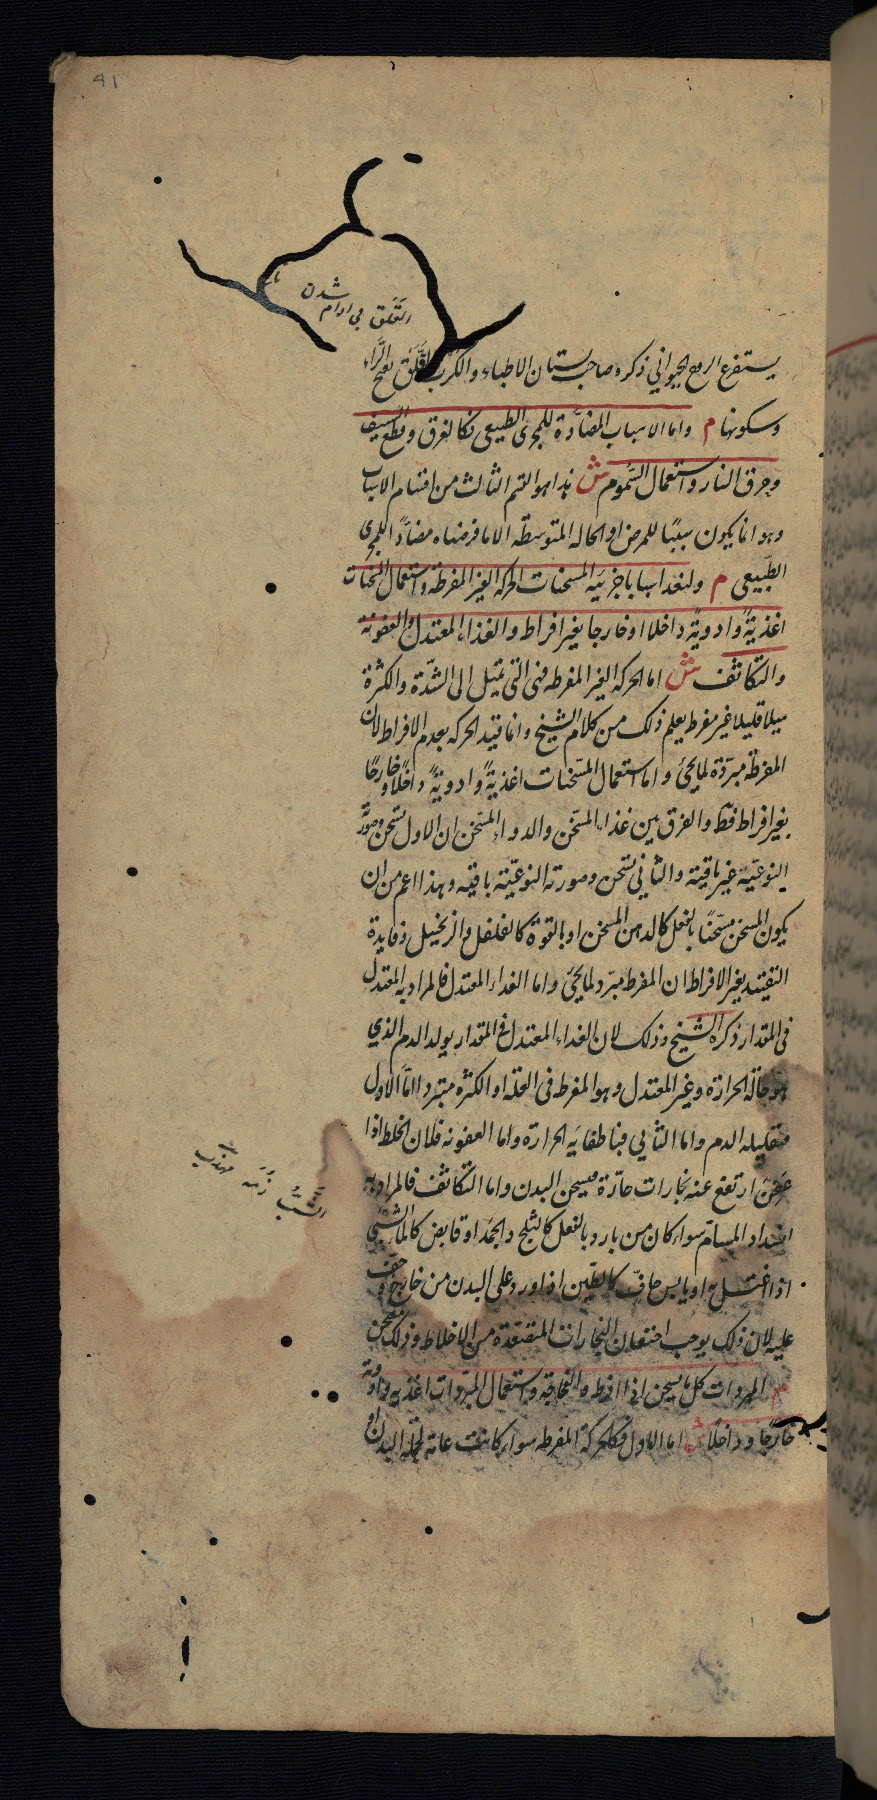 ٤١
القلق بی آرام شدن
يستفرغ الروح الحيواني ذكره صاحب بستان الاطباء والكرب القلق بفتح الراء
وسكونها م واما الاسباب المضادة للمجرى الطبيعي فكالغرق وقطع السيف
وحرق النار واستعمال السموم ش هذا هو القسم الثالث من اقسام الاسباب
وهو انما يكون سببًا للمرض او الحالة المتوسطة الا ما فرضناه مضادًا للمجرى
الطبيعي م ولنعد اسبابا جزئية المسخنات الحركة الغير المفرطة واستعمال المسخنات
اغذيةً وادويةً داخلا او خارجا بغير افراط والغذاء المعتدل والعفونة
والتكاثف ش اما الحركة الغير المفرطة فهى التى تميل الى الشدّة والكثرة
ميلا قليلا غير مفرط يعلم ذلك من كلام الشيخ وانما قيد الحركة بعدم الافراط لان
المفرطة مبرّدة لما يجئ واما استعمال المسخنات اغذيةً وادويةً داخلًا وخارجًا
بغير افراط فقط والفرق بين غذاء المسخن والدواء المسخن ان الاول يسخن وصورته
النوعيّة غير باقية والثاني يسخن وصورته النوعيّة باقية وهذا اعم من ان
يكون المسخن مسخنًا بالفعل كالدهن المسخن او بالقوة كالفلفل والزنجبيل وفايدة
التقييد بغير الافراط ان المفرط مبرّد لما يجئ واما الغذاء المعتدل فالمراد به المعتدل
فى المقدار ذكره الشيخ وذلك لان الغذاء المعتدل فى المقدار يولد الدم الذي
هو مادة الحرارة وغير المعتدل وهو المفرط فى القلة او الكثرة مبرد اما الاول
فتقليله الدم واما الثاني فبانطفاية الحرارة واما العفونة فلان الخلط اذا
عفن ارتفع عنه بخارات حارّة فيسخن البدن واما التكاثف فالمراد به
انسداد المسام سواء كان من بارد بالفعل كالثلج والجمد او قابض كالماء الشبّي
اذا اغتسل به او يابس جافّ كالطين اذا اورد على البدن من خارج وجفّ
عليه لان ذلك يوجب احتقان البخارات المتصعّدة من الاخلاط وذلك مسخن
م المبردات كل ما يسخن اذا افرط والفجاجة واستعمال المبرّدات اغذية وادوية
خارجًا وداخلًا ش اما الاول فكالحركة المفرطة سواء كانت عامة لجملة البدن او
الشبّ زمه